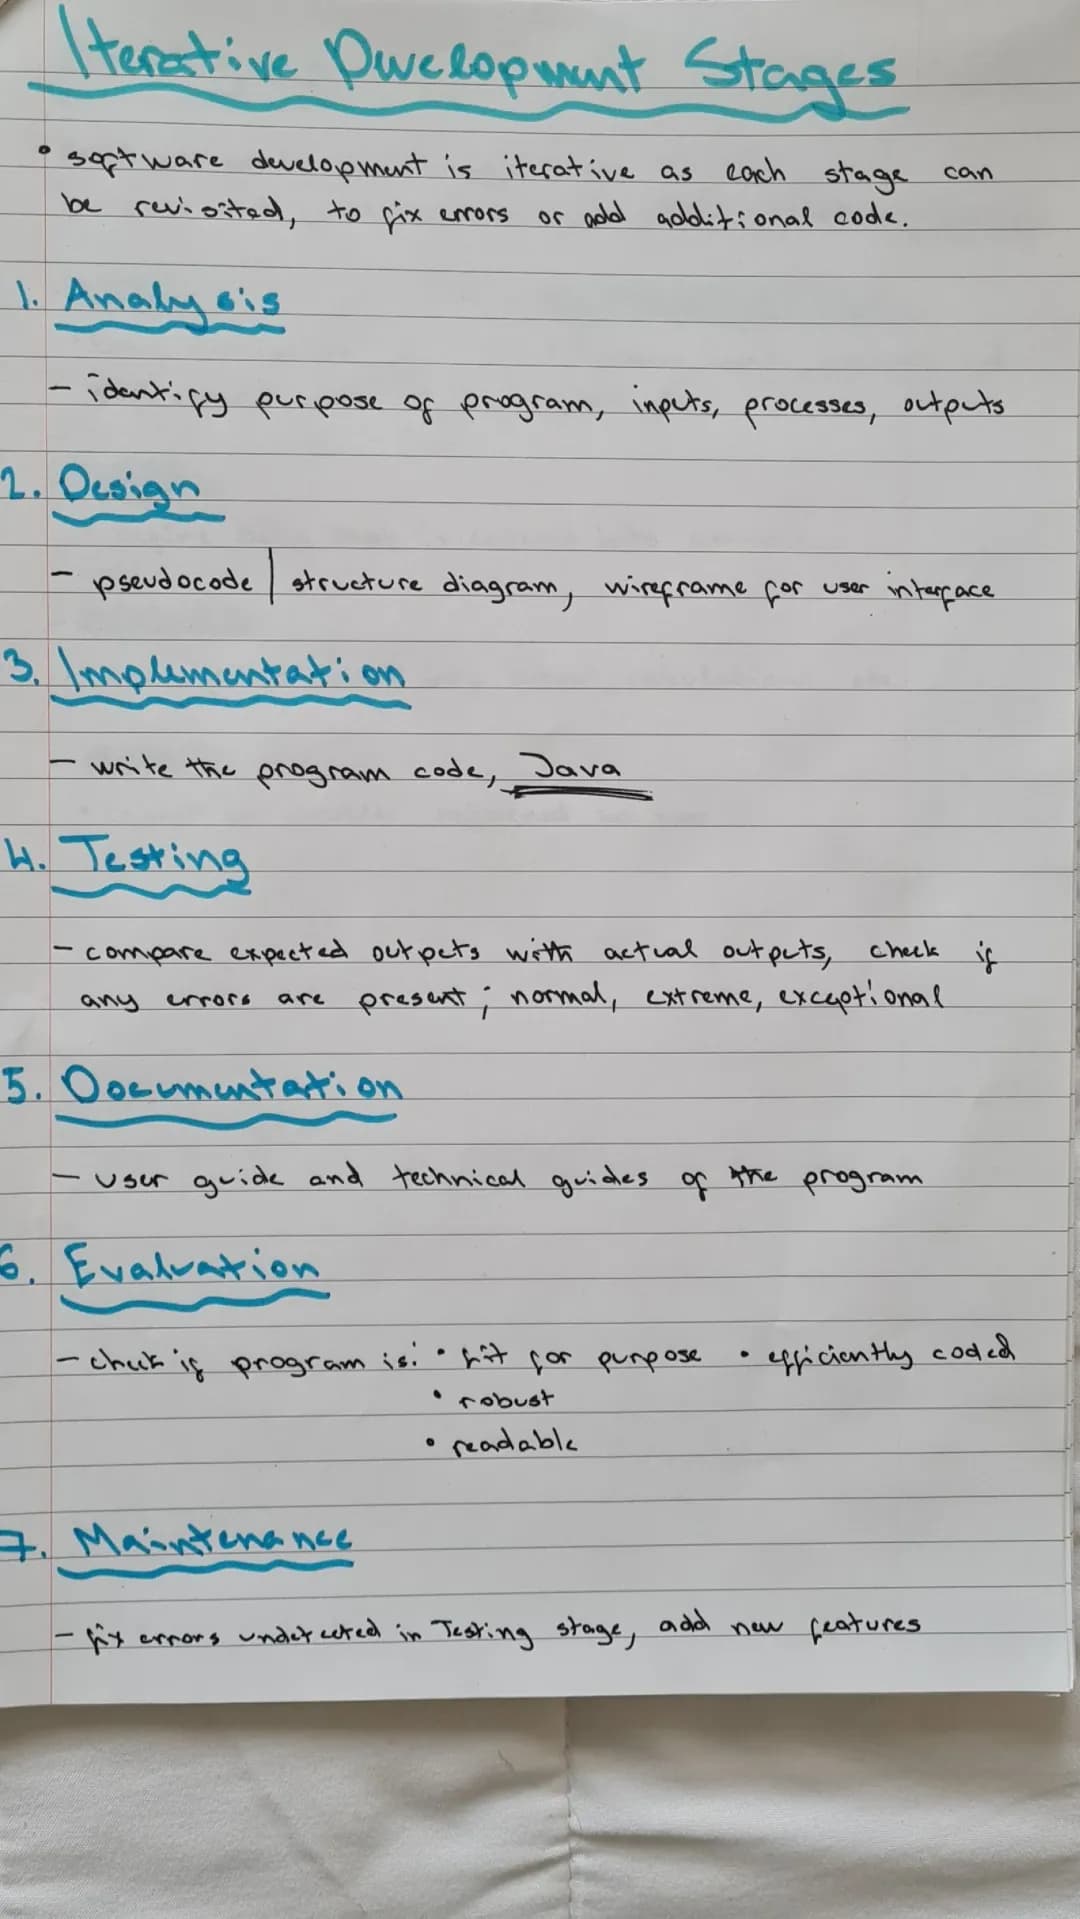 Iterative Development Stages
• software development is iterative as each stage can
be revisited, to fix errors or add additional code.
1. Analysis
- identify purpose of program, inputs, processes, outputs
2. Design
- pseudocode | structure diagram, wireframe for user interface
3. Implementation
- write the program code, Java
4. Testing
- compare expected outputs with actual outputs, check if
any errors are present; normal, extreme, exceptional
5. Documentation
- user guide and technical guides of the program
6. Evaluation
- check if program is: • fit for purpose • efficiently coded
• robust
• readable
7. Maintenance
- fix errors undetected in Testing stage, add new features